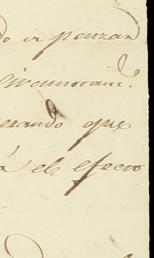 do a pensar
Circunstanc.
erando que
a el efecto